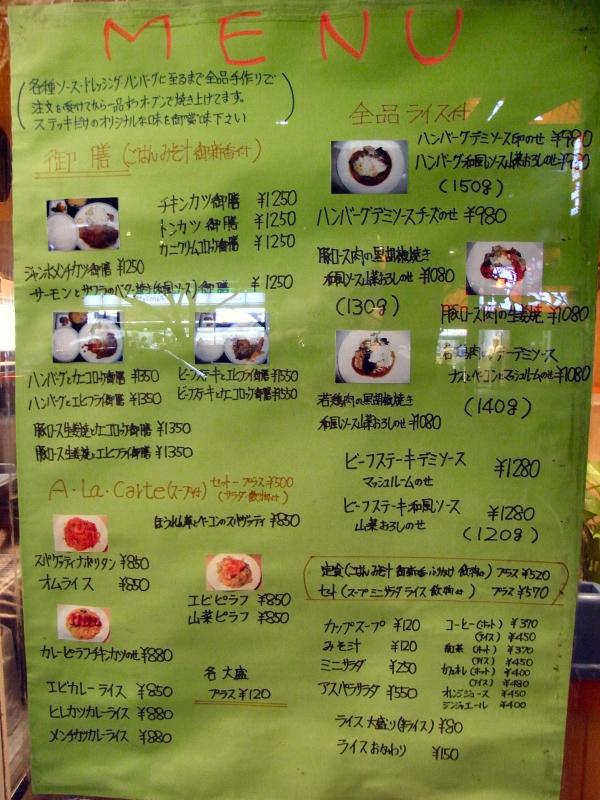 MENU
各種ソース・ドレッシング、ハンバーグに至るまで全品手作りで
注文を受けてから一品ずつオーブンで焼き上げてます。
ステッキだけのオリジナルな味を御賞味下さい
御膳 (ごはんみそ汁御新香付)
チキンカツ御膳 ¥1250
トンカツ御膳 ¥1250
カニクリームコロッケ御膳 ¥1250
ジャンボメンチカツ御膳 ¥1250
サーモンとサワラのバター焼き(和風ソース)御膳 ¥1250
ハンバーグとカニコロッケ御膳 ¥1350
ハンバーグとエビフライ御膳 ¥1350
ビーフステーキとエビフライ御膳 ¥1550
ビーフステーキとカニコロッケ御膳 ¥1550
豚ロース生姜焼とカニコロッケ御膳 ¥1350
豚ロース生姜焼とエビフライ御膳 ¥1350
A・La・Carte(スープ付) セット プラス¥500
(サラダ飲物付)
ほうれん草とベーコンのスパゲッティ ¥850
スパゲッティナポリタン ¥850
オムライス ¥850
エビピラフ ¥850
山菜ピラフ ¥850
カレーピラフチキンカツのせ ¥880
エビカレーライス ¥850
ヒレカツカレーライス ¥880
メンチカツカレーライス ¥880
各大盛
プラス¥120
全品ライス付
ハンバーグデミソース卵のせ ¥980
ハンバーグ和風ソース山菜おろしのせ ¥980
(150g)
ハンバーグデミソースチーズのせ ¥980
豚ロース肉の黒胡椒焼き
和風ソース山菜おろしのせ ¥1080
(130g)
豚ロース肉の生姜焼 ¥1080
若鶏肉のソテーデミソース
ナスとベーコンとマッシュルームのせ ¥1080
(140g)
若鶏肉の黒胡椒焼き
和風ソース山菜おろしのせ ¥1080
ビーフステーキデミソース
マッシュルームのせ ¥1280
ビーフステーキ和風ソース
山菜おろしのせ ¥1280
(120g)
定食(ごはんみそ汁御新香ふりかけ飲物付) プラス¥520
セット(スープミニサラダライス飲物付) プラス¥570
カップスープ ¥120
みそ汁 ¥120
ミニサラダ ¥250
アスパラサラダ ¥550
コーヒー(ホット) ¥370
(アイス) ¥450
紅茶(ホット) ¥370
(アイス) ¥450
カフェオレ(ホット) ¥400
(アイス) ¥480
オレンジジュース ¥450
ジンジャエール ¥400
ライス大盛り(半ライス) ¥80
ライスおかわり ¥150